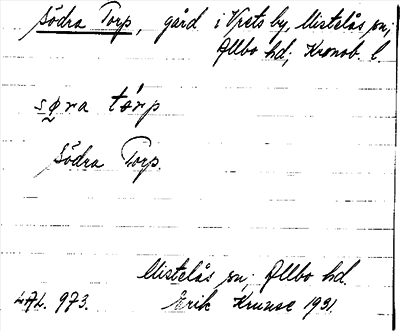 Södra Torp, gård i Vrets by, Mistelås sn;
Allbo hd; Kronob. l.
søra tórp
Södra Torp.
Mistelås sn; Allbo hd.
973. Erik Kruuse 1931.